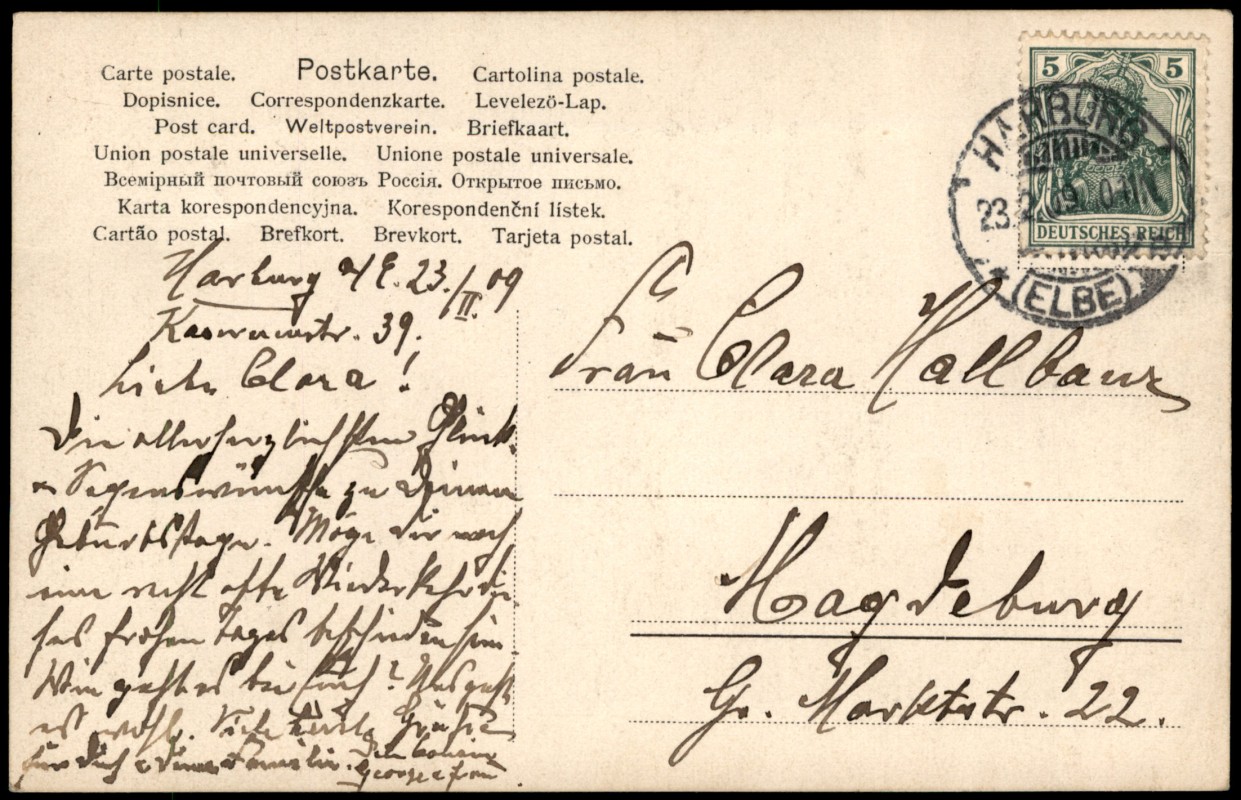 Carte postale. Postkarte. Cartolina postale.
Dopisnice. Correspondenzkarte. Levelezö-Lap.
Post card. Weltpostverein. Briefkaart.
Union postale universelle. Unione postale universale.
Всемірный почтовый союзъ Россія. Открытое письмо.
Karta korespondencyjna. Korespondenční lístek.
Cartão postal. Brefkort. Brevkort. Tarjeta postal.
5 5
DEUTSCHES REICH
HARBURG
23.2.09
* (ELBE)
Harburg a/E. 23./II. 09
Kasernenstr. 39.
Liebe Clara!
Die allerherzlichsten Glück-
u. Segenswünsche zu Deinem
Geburtstage. Möge Dir noch
eine recht ofte Wiederkehr die-
ses frohen Tages beschieden sein.
Wie geht es bei Euch? Uns geht
es wohl. Viele Grüße
für Dich u. Deine Familie.
George u. Frau
Frau Clara Hallbaur
Magdeburg
Gr. Marktstr. 22.